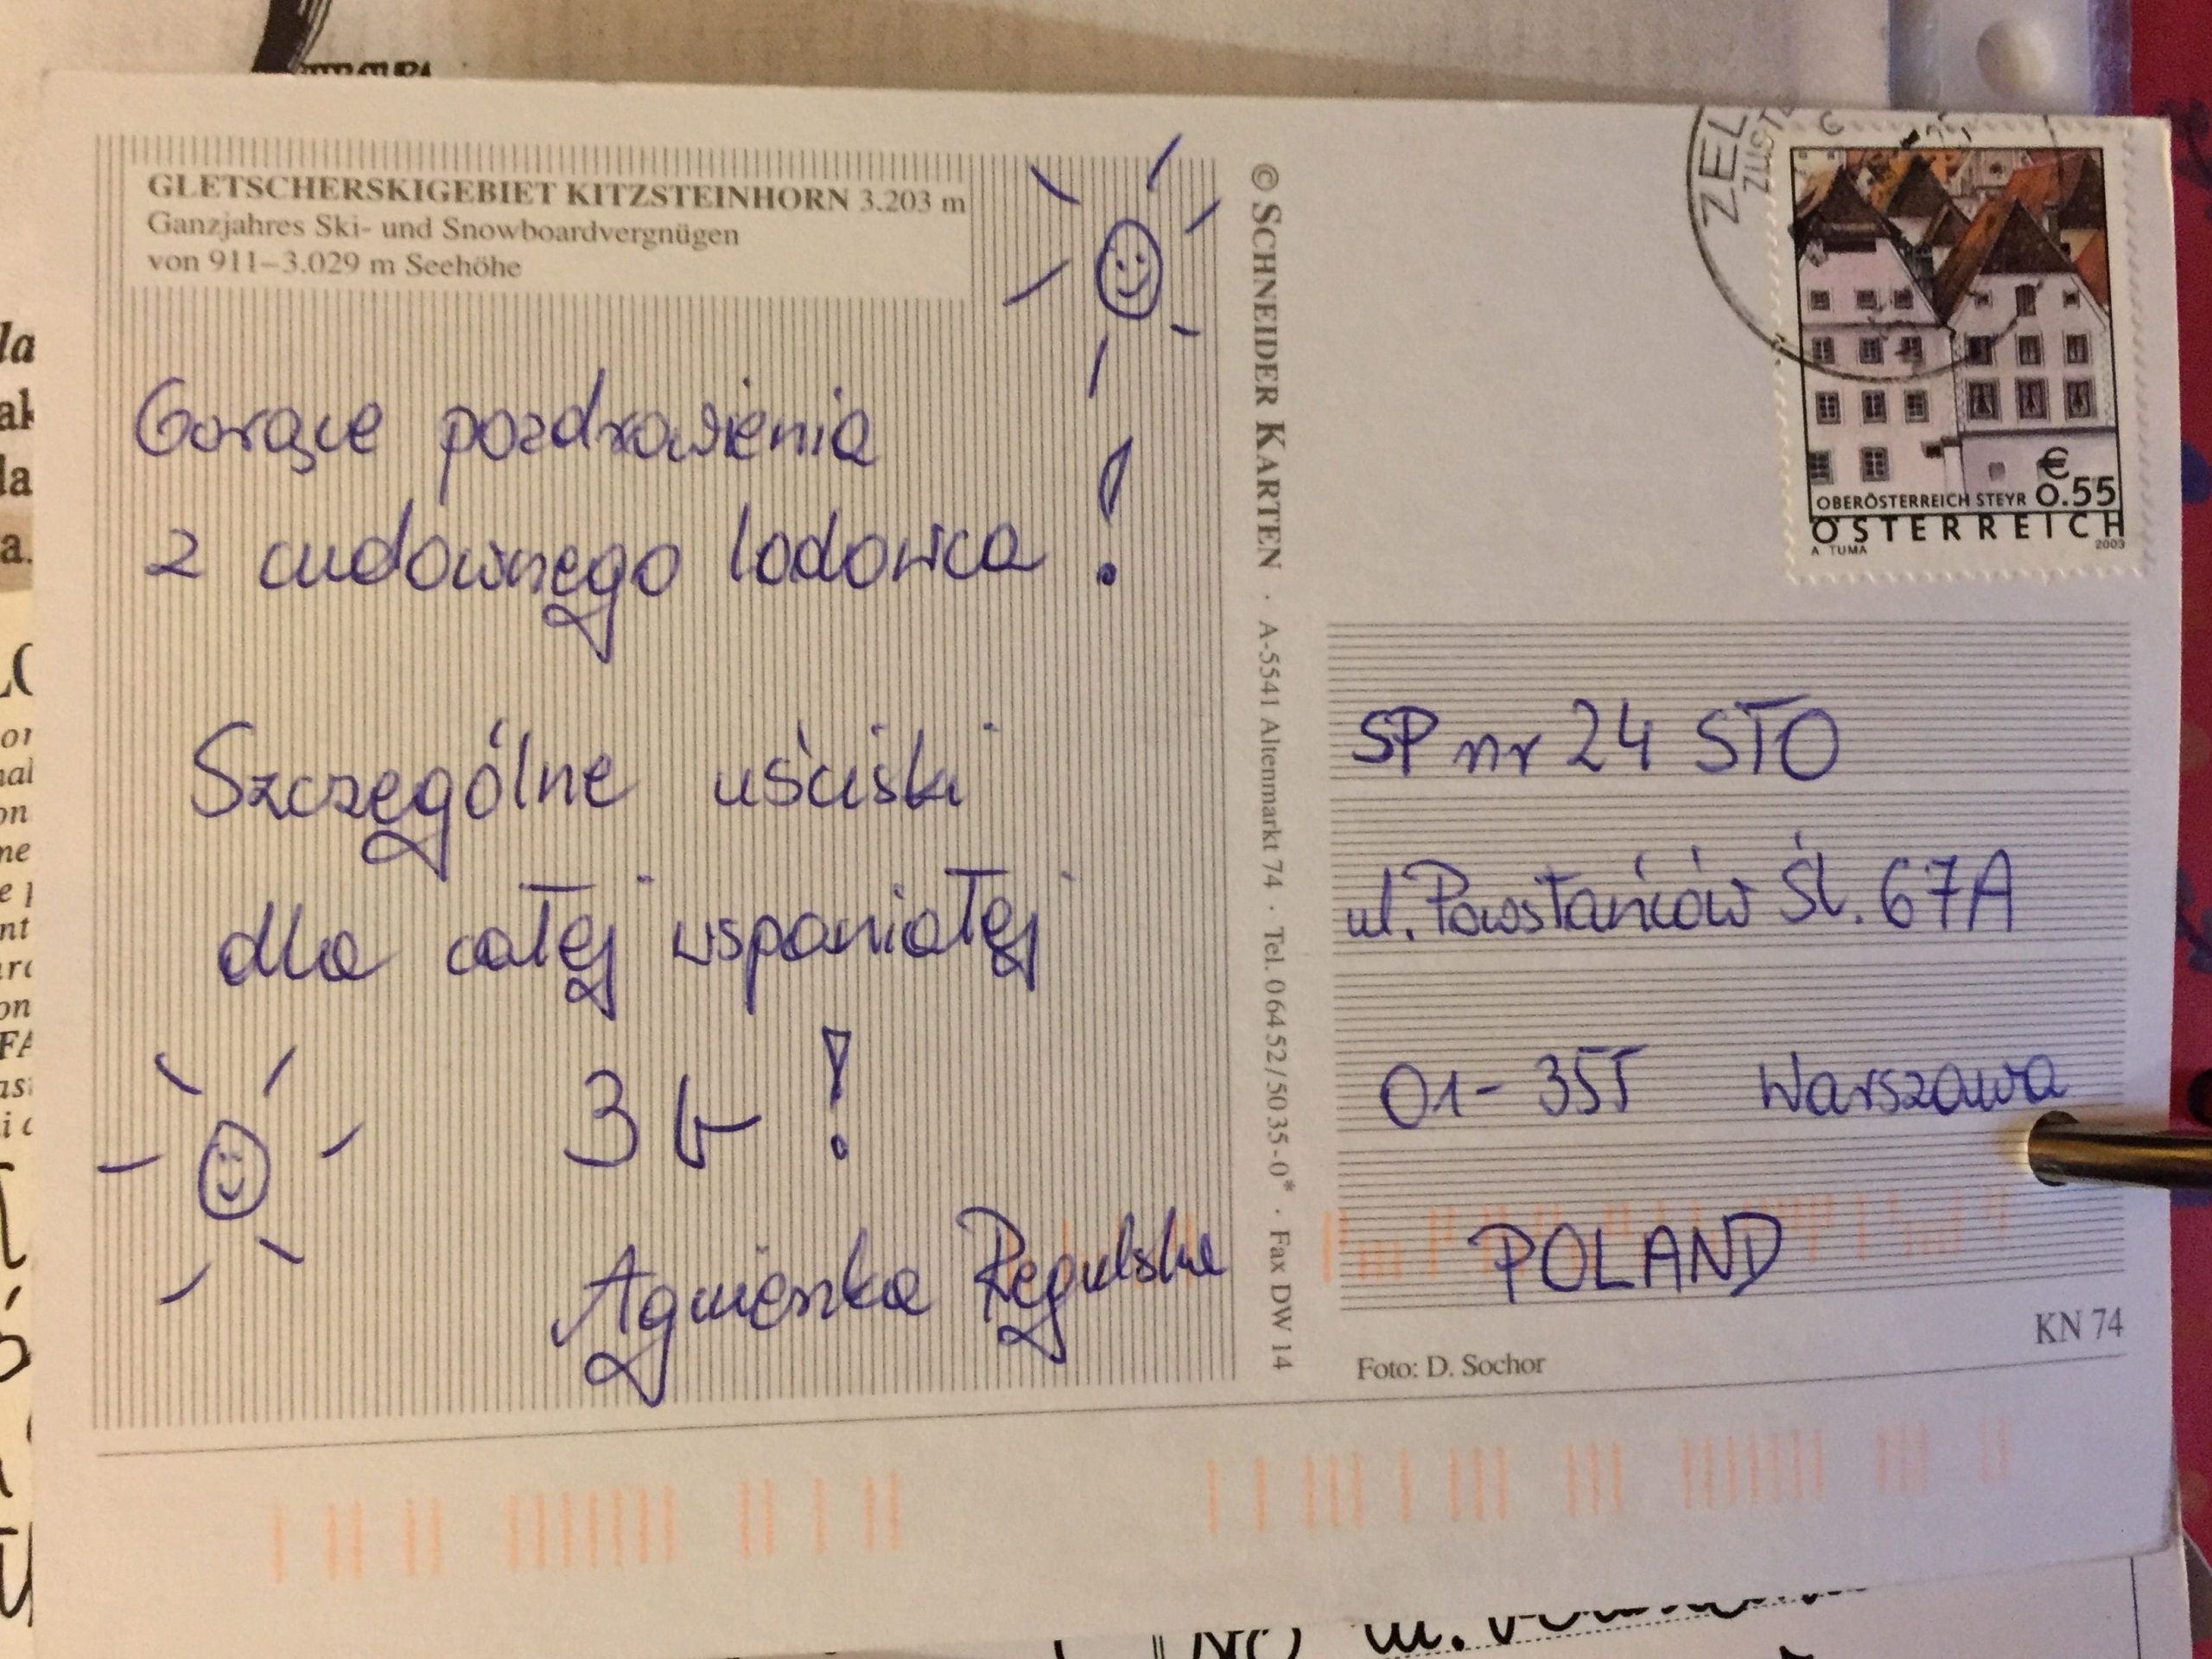 GLETSCHERSKIGEBIET KITZSTEINHORN 3.203 m
Ganzjahres Ski- und Snowboardvergnügen
von 911–3.029 m Seehöhe
Gorące pozdrowienia
z cudownego lodowca !
Szczególne uściski
dla całej wspaniałej
3 b !
Agnieszka Regulska
© SCHNEIDER KARTEN · A-5541 Altenmarkt 74 · Tel. 0 64 52 / 50 35-0* · Fax DW 14
ZEL
€
0.55
OBERÖSTERREICH STEYR
ÖSTERREICH
A. TUMA
2003
SP nr 24 STO
ul. Powstańców Śl. 67A
01-355 Warszawa
POLAND
KN 74
Foto: D. Sochor